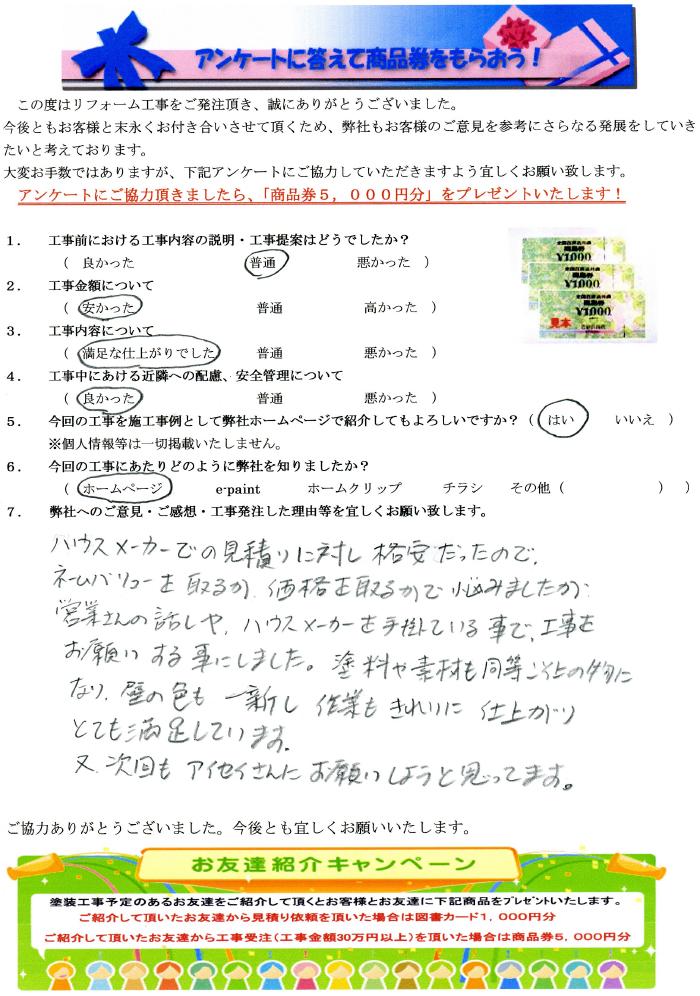 アンケートに答えて商品券をもらおう！
この度はリフォーム工事をご発注頂き、誠にありがとうございました。
今後ともお客様と末永くお付き合いさせて頂くため、弊社もお客様のご意見を参考にさらなる発展をしていき
たいと考えております。
大変お手数ではありますが、下記アンケートにご協力していただきますよう宜しくお願い致します。
アンケートにご協力頂きましたら、「商品券５，０００円分」をプレゼントいたします！
１． 工事前における工事内容の説明・工事提案はどうでしたか？
（ 良かった 普通 悪かった ）
２． 工事金額について
（ 安かった 普通 高かった ）
３． 工事内容について
（ 満足な仕上がりでした 普通 悪かった ）
４． 工事中にあける近隣への配慮、安全管理について
（ 良かった 普通 悪かった ）
５． 今回の工事を施工事例として弊社ホームページで紹介してもよろしいですか？（ はい いいえ ）
※個人情報等は一切掲載いたしません。
６． 今回の工事にあたりどのように弊社を知りましたか？
（ ホームページ e-paint ホームクリップ チラシ その他（ ） ）
７． 弊社へのご意見・ご感想・工事発注した理由等を宜しくお願い致します。
¥1,000
¥1,000
¥1,000
見本
ハウスメーカーでの見積りに対し 格安だったので、
ネームバリューを取るか、価格を取るかで悩みましたが
営業さんの話しや、ハウスメーカーを手掛ている事で、工事を
お願いする事にしました。塗料や素材も同等以上の物に
なり、壁の色も一新し 作業もきれいに 仕上がり
とても満足しています。
又、次回も アイセイさんに お願いしようと思ってます。
ご協力ありがとうございました。今後とも宜しくお願いいたします。
お友達紹介キャンペーン
塗装工事予定のあるお友達をご紹介して頂くとお客様とお友達に下記商品をプレゼントいたします。
ご紹介して頂いたお友達から見積り依頼を頂いた場合は図書カード１，０００円分
ご紹介して頂いたお友達から工事受注（工事金額30万円以上）を頂いた場合は商品券５，０００円分